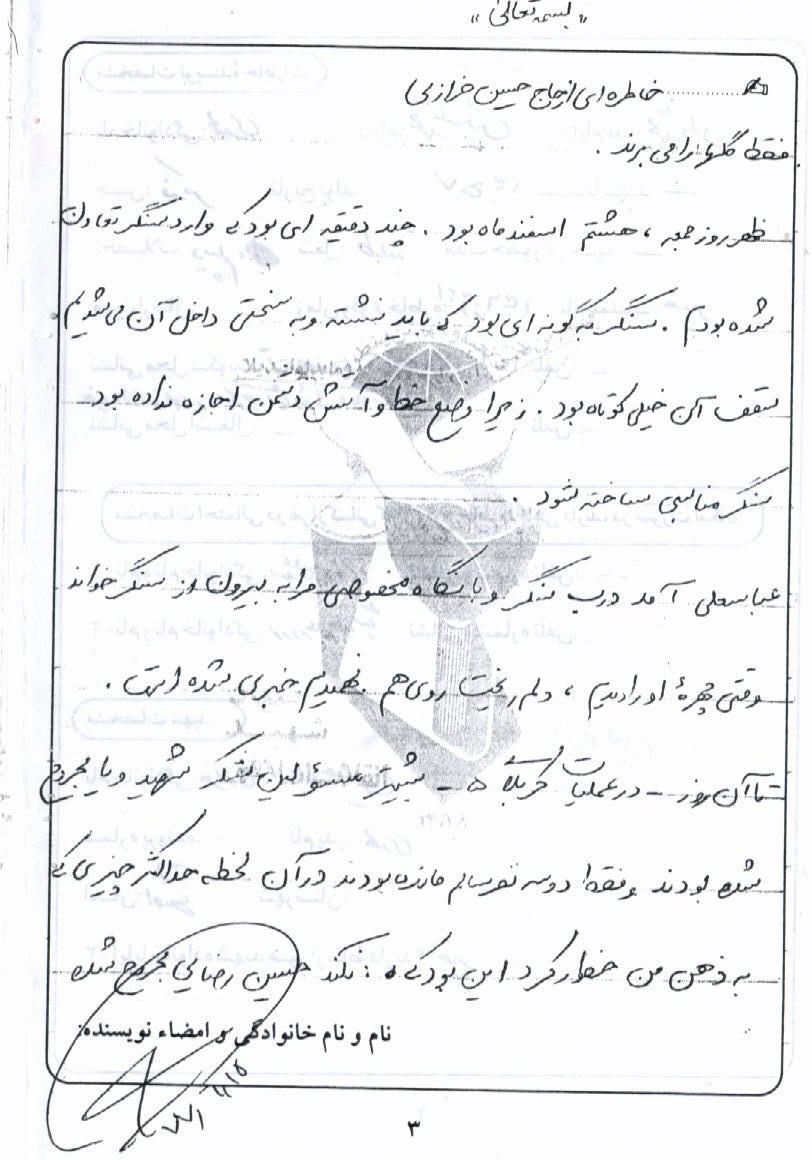 «بسمه تعالی»
خاطره ای از حاج حسین خرازی
فقط گلها را می برند .
ظهر روز جمعه ، هشتم اسفند ماه بود . چند دقیقه ای بود که وارد سنگر تعاون
شده بودم . سنگر به گونه ای بود که باید نشسته و به سختی داخل آن می شدیم
سقف آن خیلی کوتاه بود . زیرا وضع خط و آتش دشمن اجازه نداده بود
سنگر مناسبی ساخته شود .
عباسعلی آمد درب سنگر و با نگاه مخصوصی مرا به بیرون از سنگر خواند
وقتی چهرهٔ او را دیدیم ، دلم ریخت روی هم فهمیدیم خبری شده است .
تا آن روز - در عملیات کربلای ۵ - بیشتر مسؤولین لشکر شهید و یا مجروح
شده بودند و فقط دو سه نفر سالم مانده بودند در آن لحظه حداکثر چیزی که
به ذهن من خطور کرد این بود که : نکند حسین رضایی مجروح شده
نام و نام خانوادگی و امضاء نویسنده:
۳